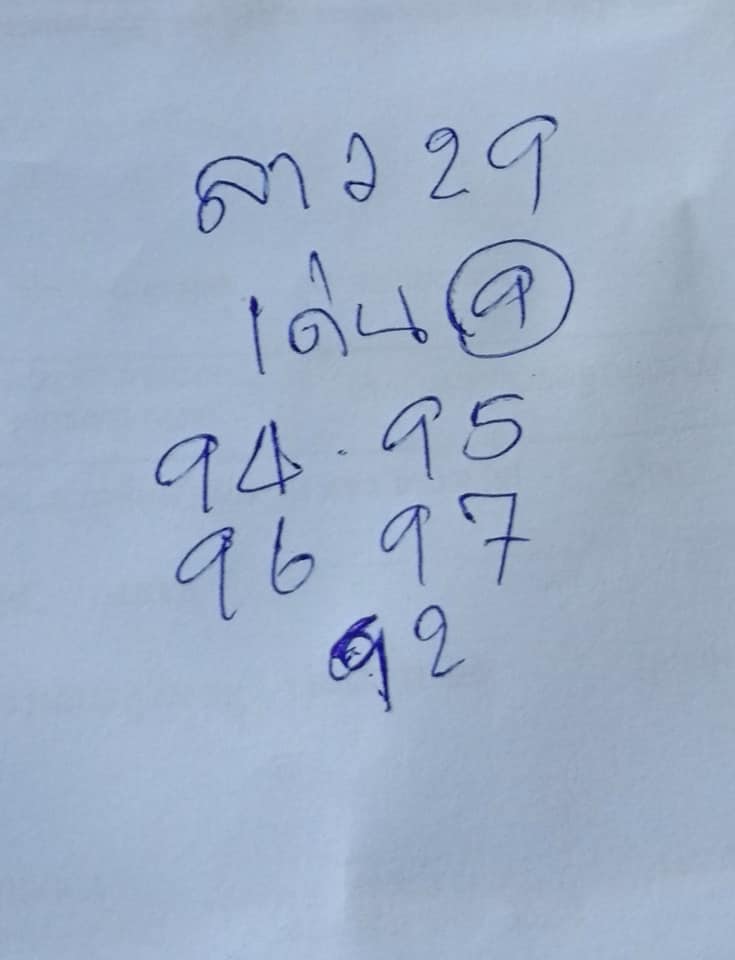 ลาว 29
เด่น 9
94 . 95
96 97
92